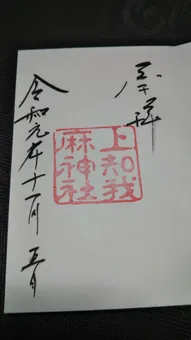 上知我
麻神社
令和元年十一月五日